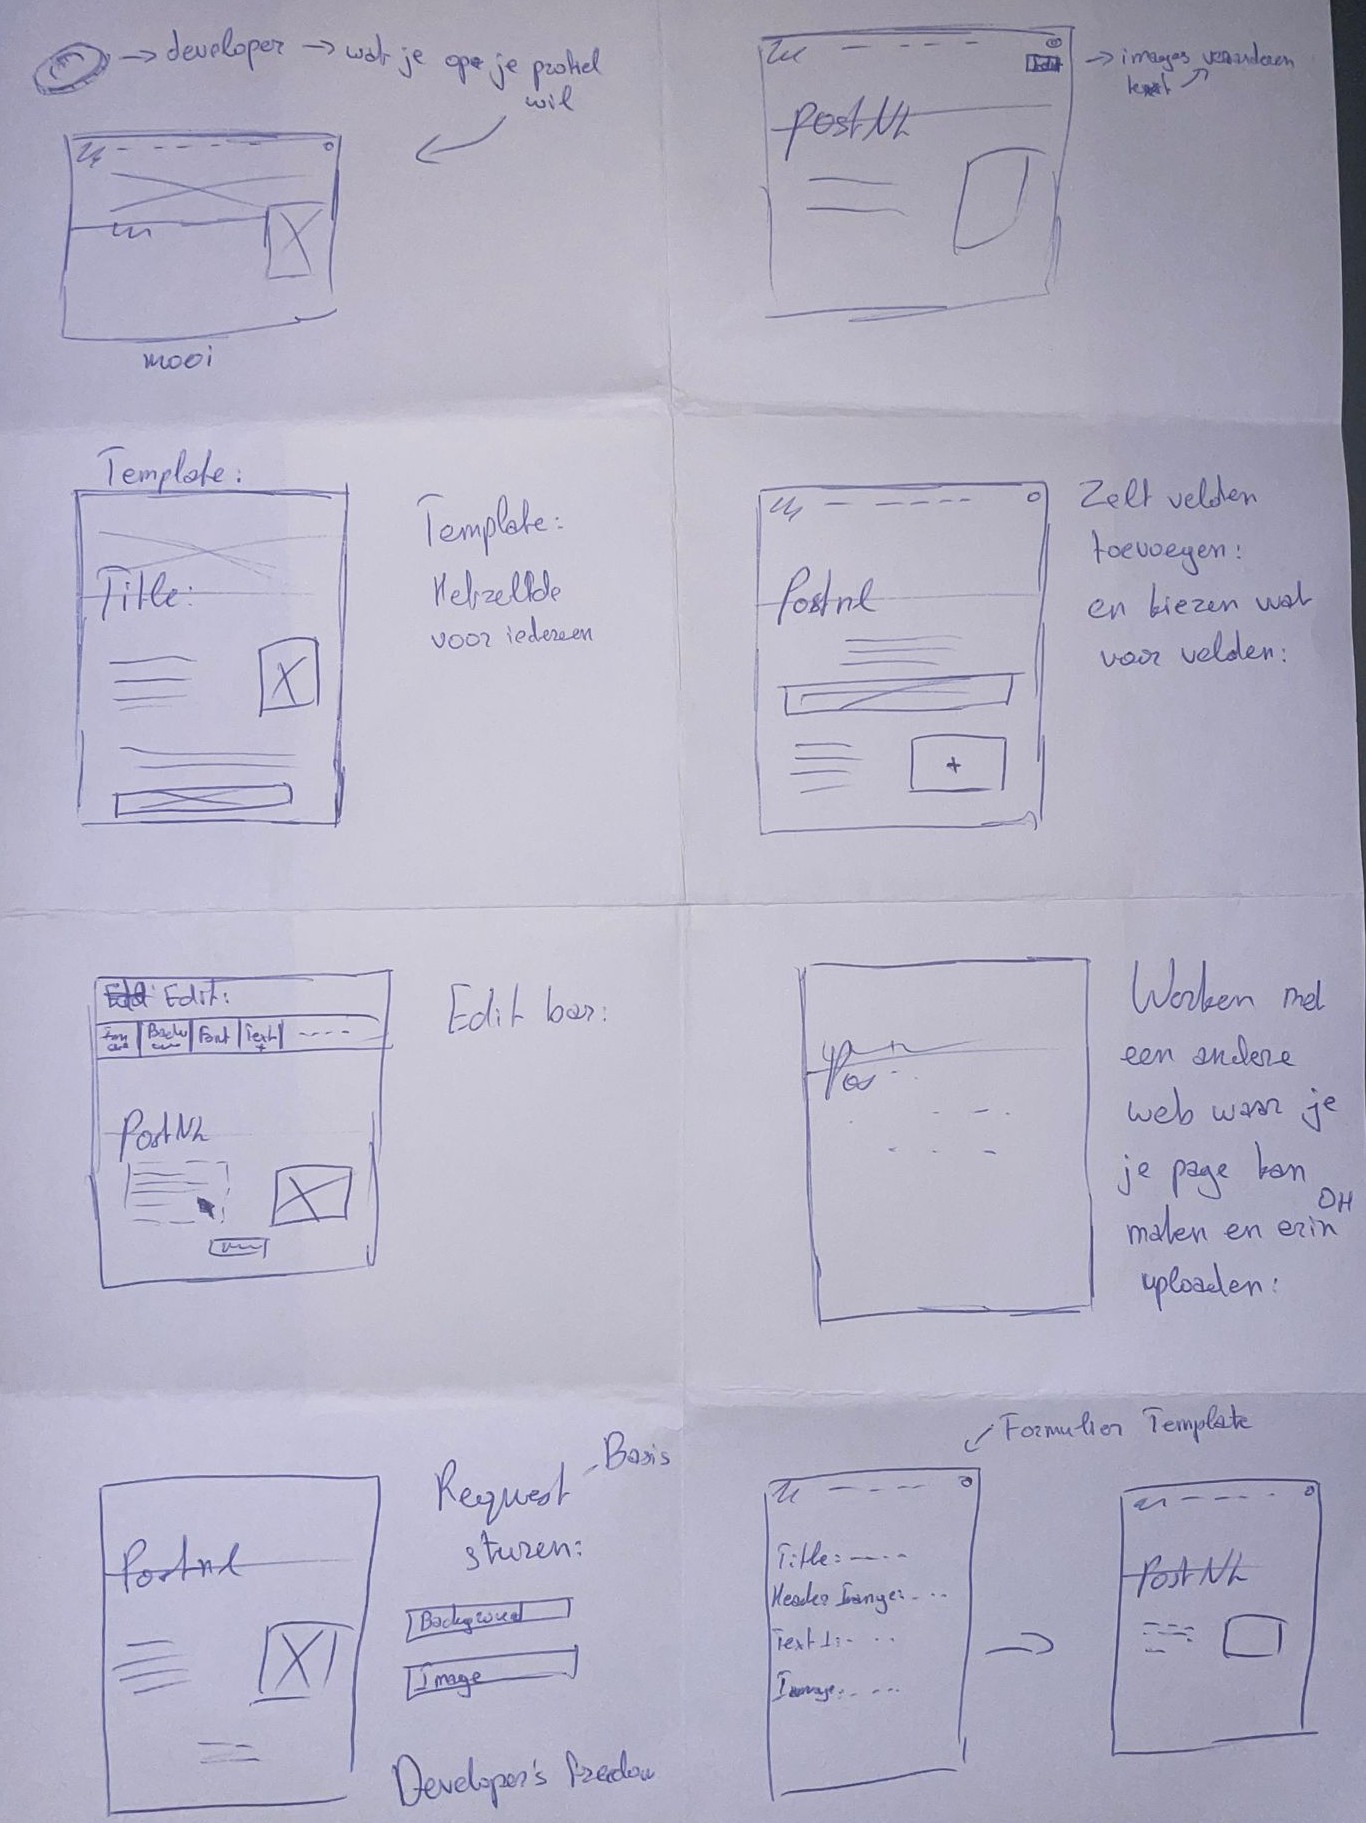 → developer → wat je op je profiel
wil
mooi
Edit
→ images veranderen
PostNL
Template:
Title:
Template:
Hetzelfde
voor iedereen
Postnl
+
Zelf velden
toevoegen:
en kiezen wat
voor velden:
Edit:
Font
Text
+
PostNL
Edit bar:
Pos
Werken met
een andere
web waar je
je page kan
maken en erin
OH
uploaden:
Postnl
Request
Basis
sturen:
Background
Image
Developer's freedom
Formulier Template
Title:
Header Image:
Text 1:
Image:
PostNL